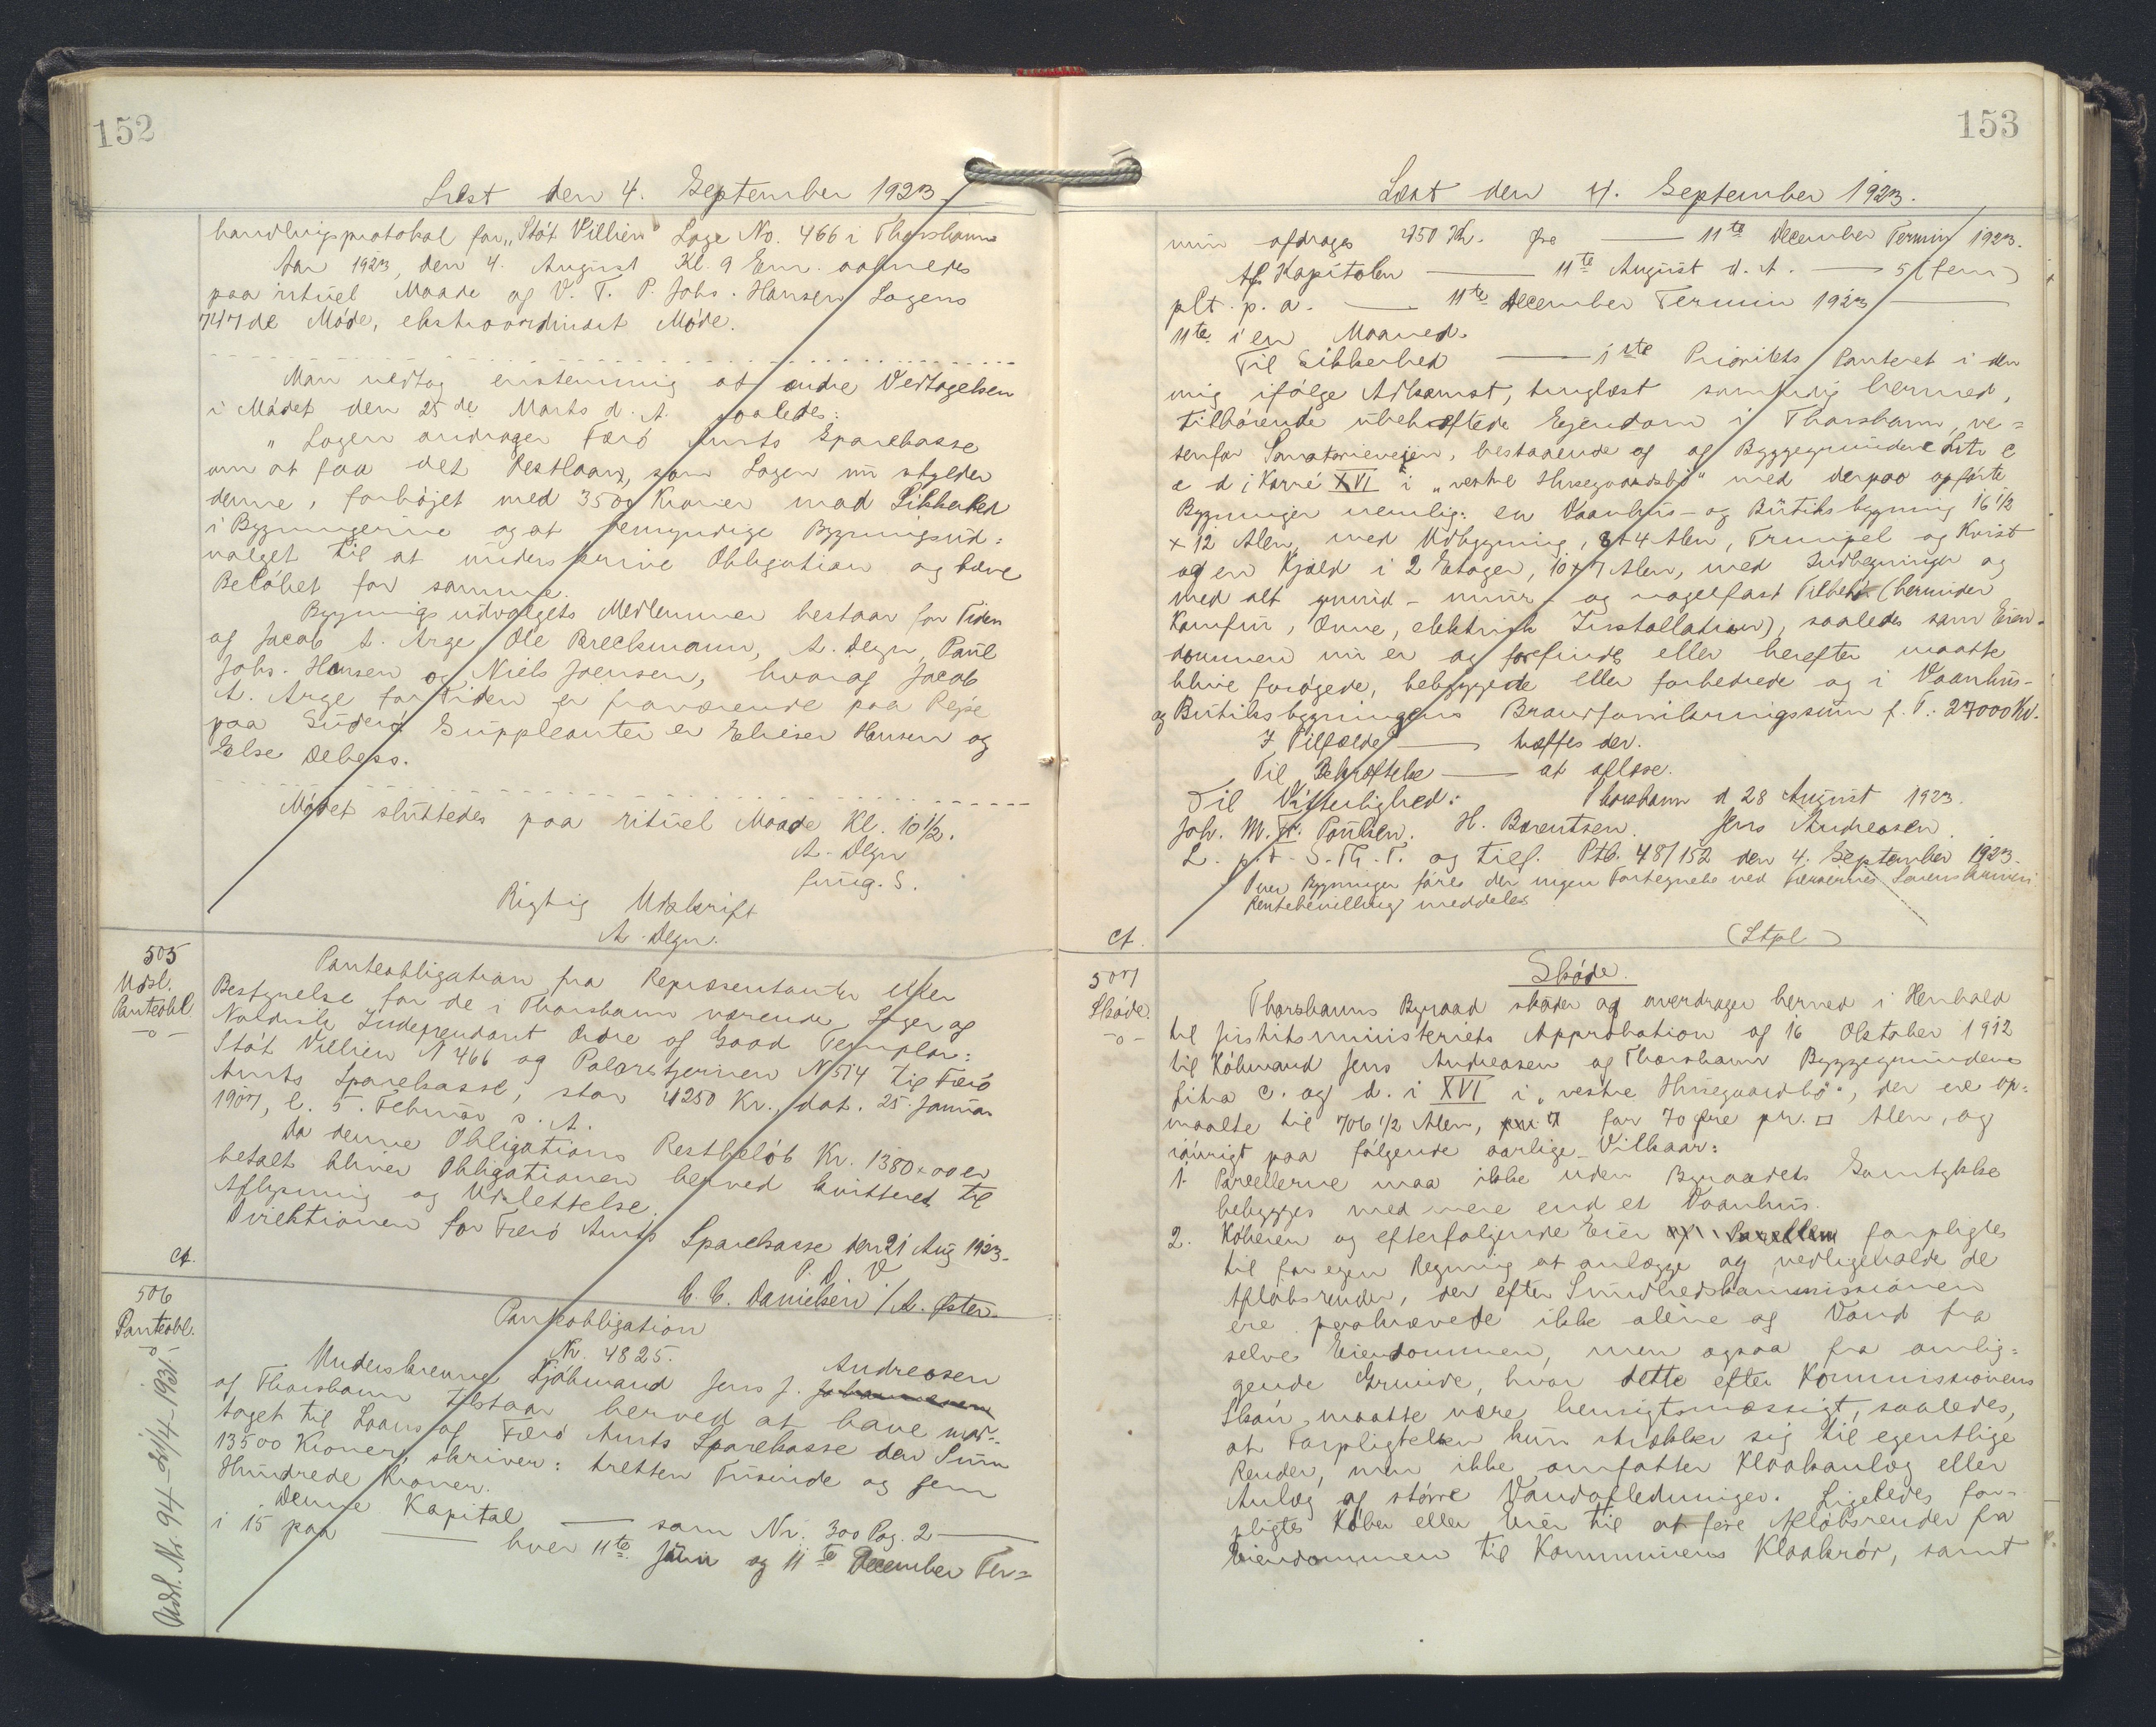 152
Læst den 4. September 1923.
handlingsprotokol for "Stót Villien" Loge No. 466 i Thorshavn
Aar 1923, den 4. August Kl. 9 Em. aabnedes
paa rituel Maade af V. T. P. Johs. Hansen Logens
747de Møde, ekstraordinært Møde.
Man vedtog enstemmig at ændre Vedtagelsen
i Mødet den 25de Marts d. A. saaledes:
"Logen andrager Færø Amts Sparekasse
om at faa det Restlaan, som Logen nu skylder
denne, forhøjet med 3500 Kroner mod Sikkerhed
i Bygningerne og at bemyndige Bygningsud=
valget til at underskrive Obligation og hæve
Beløbet for samme.
Bygningsudvalgets Medlemmer bestaar for Tiden
af Jacob A. Arge, Ole Breckmann, A. Degn, Paul
Johs. Hansen og Niels Joensen, hvoraf Jacob
A. Arge for Tiden er fraværende paa Rejse
paa Suderø. Suppleanter er Elieser Hansen og
Else Debess.
Mødet sluttedes paa rituel Maade Kl. 10½.
A. Degn
fung. S.
Rigtig Udskrift
A. Degn.
505
Udsl.
Panteobl.
-o-
Panteobligation fra Repræsentanter eller
Bestyrelse for de i Thorshavn værende Loger af
Nordisk Independant Ordre of Good Templar:
Stót Villien N 466 og Polarstjernen N 514 til Færø
Amts Sparekasse, stor 4250 Kr., dat. 25. Januar
1907, l. 5. Februar s. A.
Da denne Obligations Restbeløb Kr. 1380 x 00 er
betalt bliver Obligationen herved kvitteret til
Aflysning og Udslettelse.
Direktionen for Færø Amts Sparekasse den 21 Aug 1923.
P. D. V.
C. C. Danielsen / A. Øster.
ct.
506
Panteobl.
Udsl. Nr. 94 - 21/4 - 1931.
Panteobligation
Nr. 4825.
Underskrevne Kjøbmand Jens J. Andreasen
af Thorshavn tilstaar herved at have mod=
taget til Laans af Færø Amts Sparekasse den Sum
13500 Kroner, skriver: tretten Tusinde og fem
Hundrede Kroner.
Denne Kapital — som Nr. 300 Pag. 2 —
i 15 paa — hver 11te Juni og 11te December Ter=
153
Læst den 4. September 1923.
min afdrages 450 Kr. fra — 11te December Termin 1923.
Af Kapitalen — 11te August d. A. — 5 (fem)
pCt. p. a. — 11te December Termin 1923 —
11te i en Maaned.
Til Sikkerhed — 1ste Prioritets Panteret i den
mig ifølge Adkomst, tinglæst samtidig hermed,
tilhørende ubehæftede Ejendom i Thorshavn, ve=
stenfor Sanatorievejen, bestaaende af af Byggegrundene Litr c
e d i Karré XVI i "vestre Husegaardsbø" med derpaa opførte
Bygninger nemlig: en Vaanhus- og Butiksbygning 16½
x 12 Alen med Udbygning, 8 x 4 Alen, Trempel og Kvist
og en Kjæld i 2 Etager, 10 x 7 Alen, med Indhegninger og
med alt grund- muur- og nagelfast Tilbehør (herunder
Komfur, Ovne, elektrisk Installation), saaledes som Eien=
dommen nu er og forefindes eller herefter maatte
blive forøgede, bebyggede eller forbedrede og i Vaanhus-
og Butiksbygningens Brandforsikringssum f. T.: 27000 Kr.
I Tilfælde — træffes der.
Til Bekræftelse — at aflæse.
Thorshavn d 28 August 1923.
Til Vitterlighed:
Joh. M. Fr. Poulsen. H. Barentsen. Jens Andreasen.
L. p. t. S. Th. T. og tilf. Ptb. 48/152 den 4. September 1923.
Over Bygninger føres der ingen Fortegnelse ved Færøernes Sorenskriveri
Rentebevilling meddeles
(Stpl.)
ct.
507
Skøde.
-o-
Skøde.
Thorshavns Byraad skøder og overdrager herved i Henhold
til Justitsministeriets Approbation af 16 Oktober 1912
til Købmand Jens Andreasen af Thorshavn Byggegrundene
Litra c. og d. i XVI i "vestre Husegaardsbø", der er op=
maalte til 706½ Alen, for 70 Øre pr. □ Alen, og
iøvrigt paa følgende særlige Vilkaar:
1. Parcellerne maa ikke uden Byraadets Samtykke
bebygges med mere end et Vaanhus.
2. Køberen og efterfølgende Eier af Parcellen forpligtes
til for egen Regning at anlægge og vedligeholde de
Afløbsrender, der efter Sundhedskommissionen
ere paakrævede ikke alene af Vand fra
selve Eiendommen, men ogsaa fra omlig=
gende Grunde, hvor dette efter Kommissionens
Skøn, maatte være hensigtsmæssigt, saaledes,
at Forpligtelsen kun strækker sig til egentlige
Render, men ikke omfatter Kloakanlæg eller
Anlæg af større Vandafledninger. Ligeledes for=
pligtes Køber eller Eier til at føre Afløbsrender fra
Eiendommen til Kommunens Kloakrør, samt